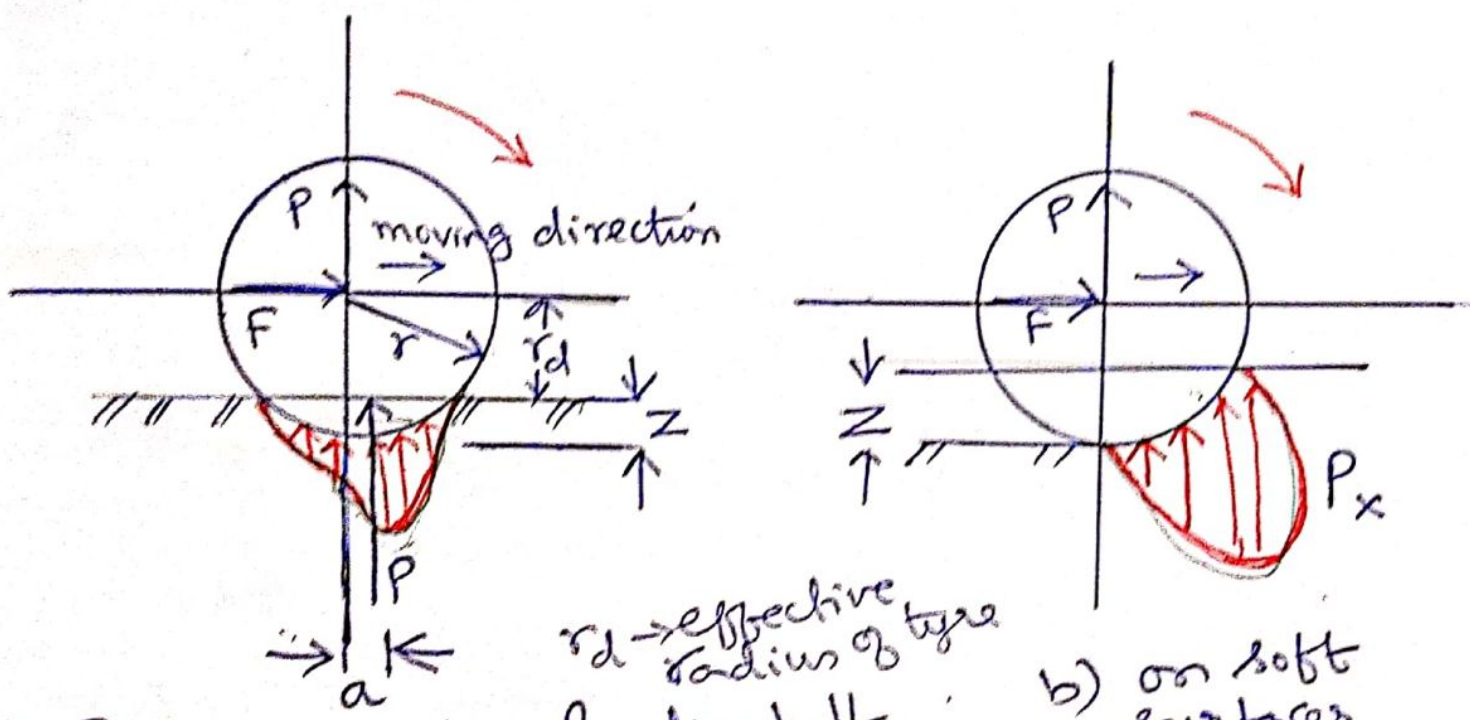 P
moving direction
F
r
r_d
Z
P
a
r_d → effective
radius of tyre
P
F
Z
P_x
b) on soft
surfaces